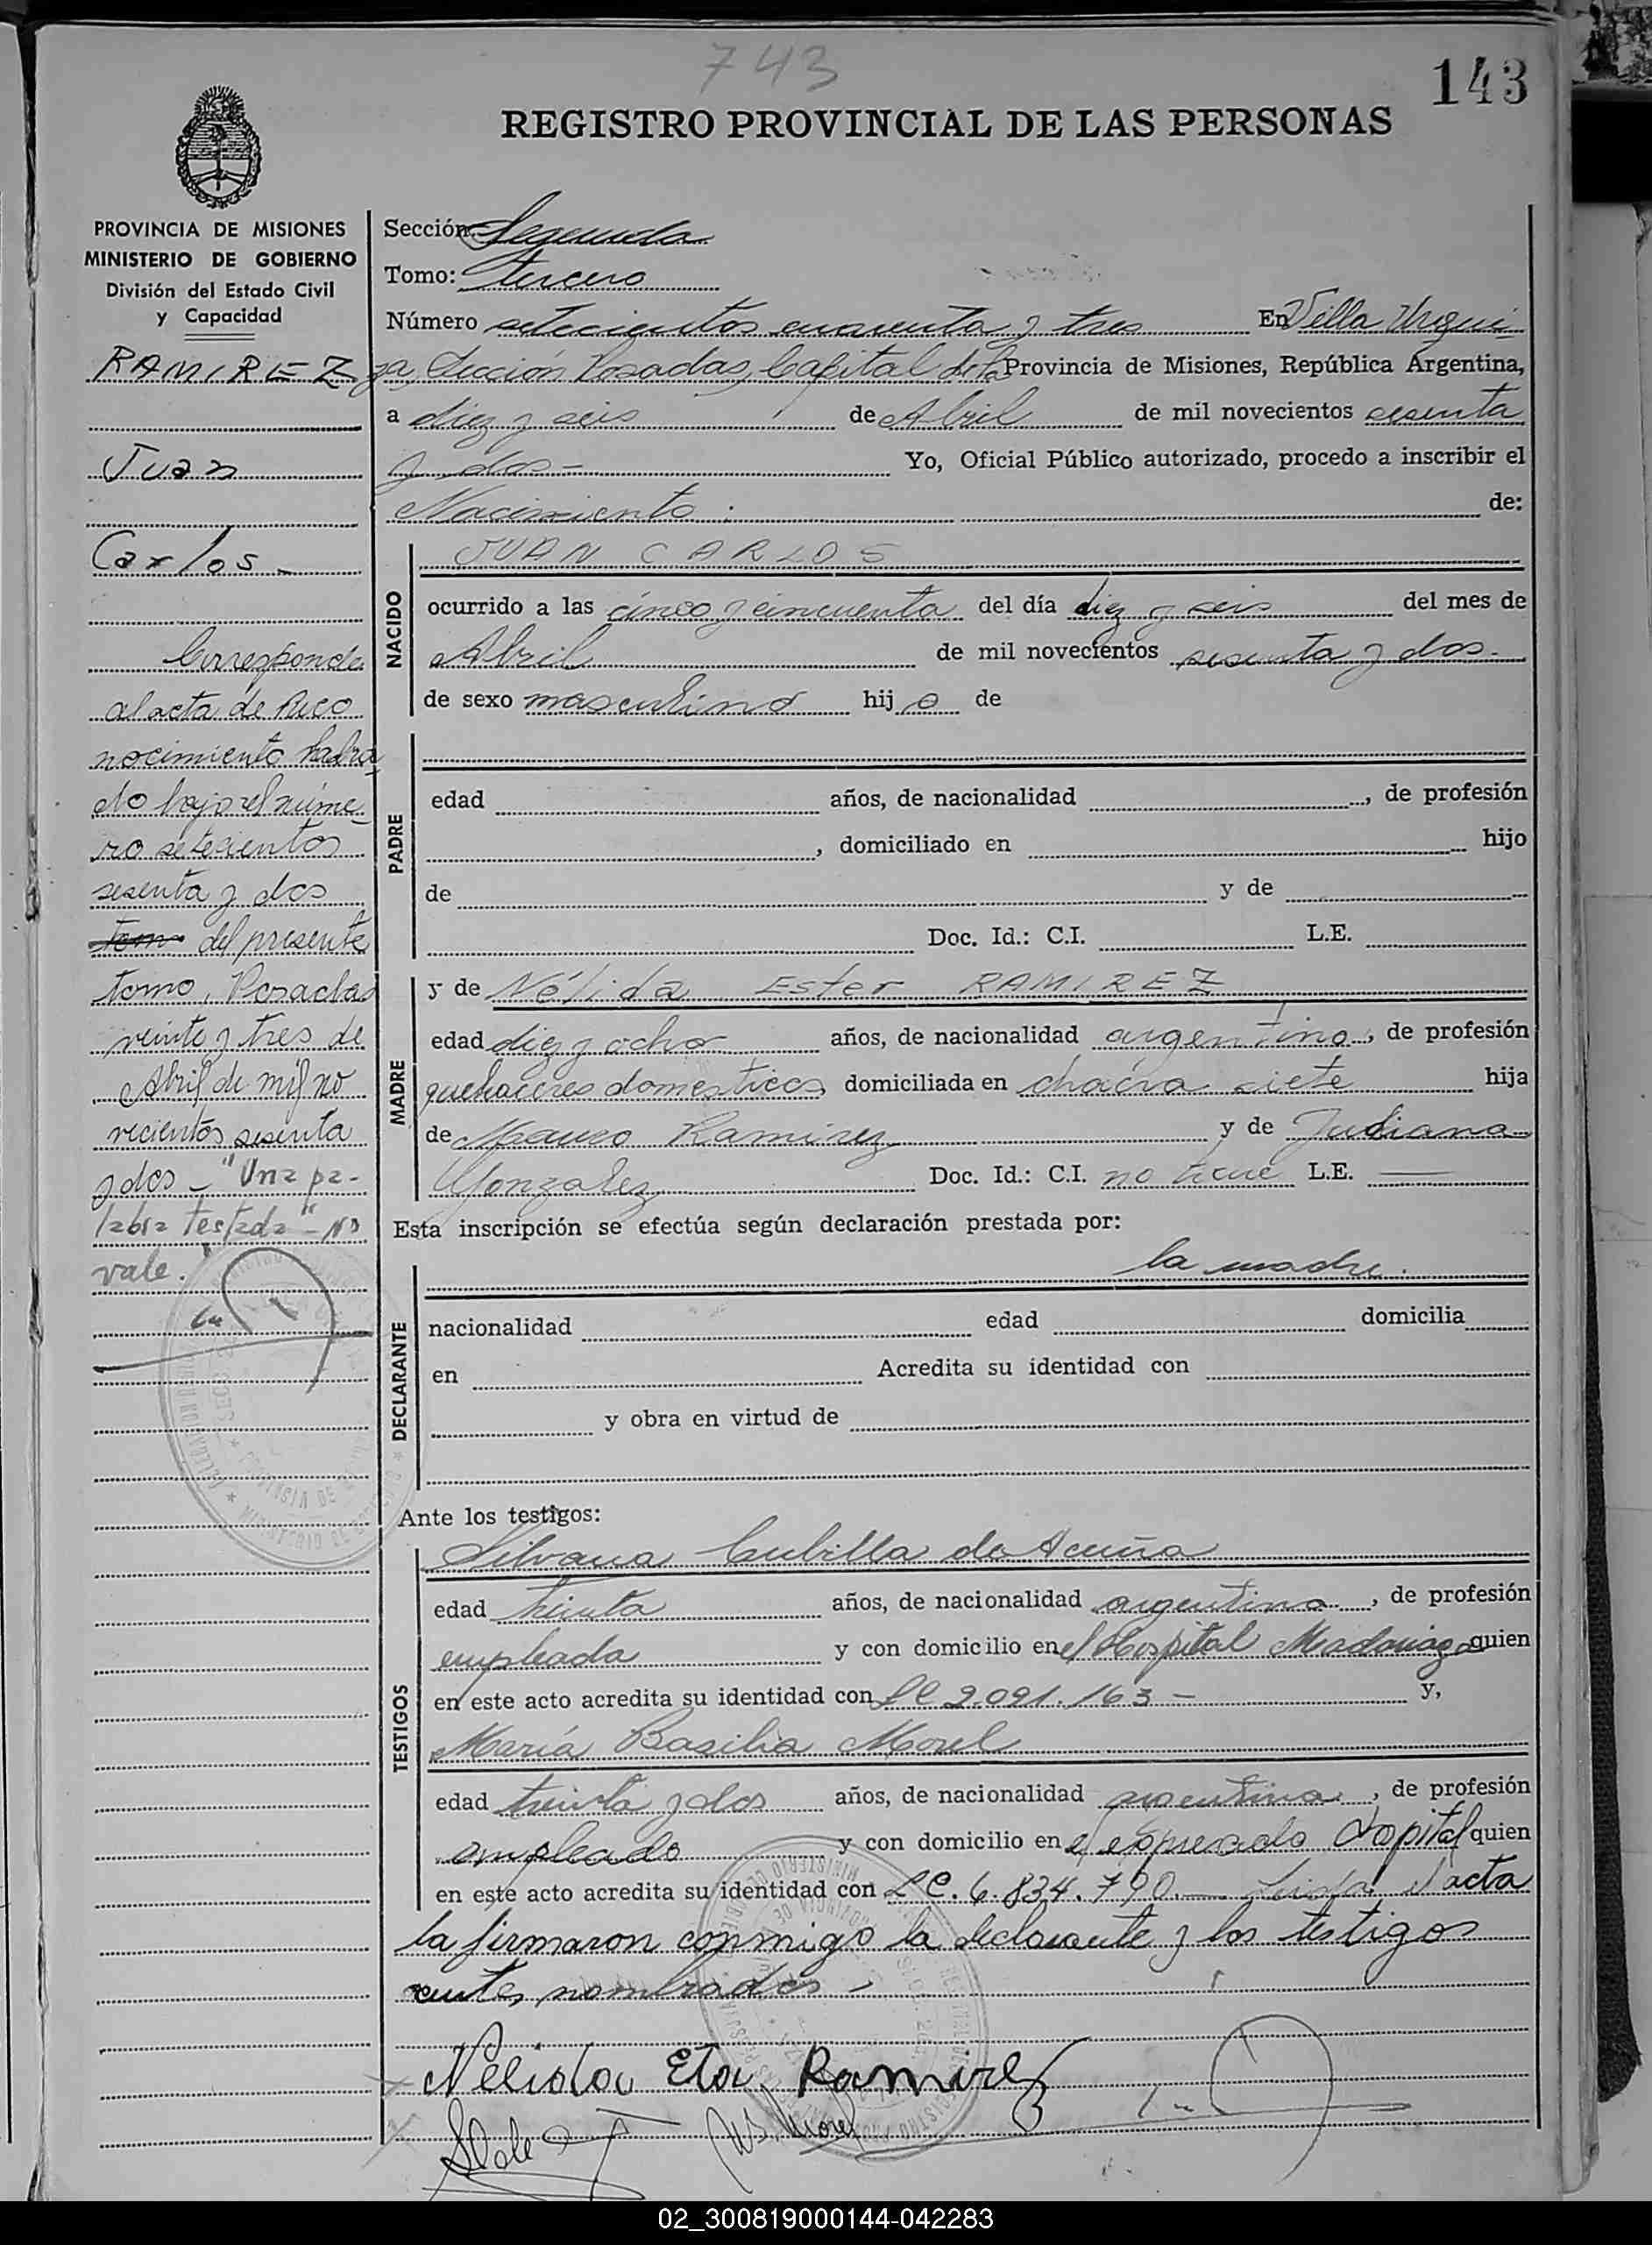 743
143
REGISTRO PROVINCIAL DE LAS PERSONAS
PROVINCIA DE MISIONES
MINISTERIO DE GOBIERNO
División del Estado Civil
y Capacidad
RAMIREZ
Juan
Carlos -
Corresponde
al acta de Reco
nocimiento labra
do bajo el núme-
ro setecientos
sesenta y dos
tomo del presente
tomo, Posadas
veinte y tres de
Abril de mil no
vecientos sesenta
y dos - "Una pa-
labra testada" - no
vale.
Sección: Segunda
Tomo: tercero
Número setecientos cuarenta y tres En Villa Urqui
za, Sección Posadas, Capital de la Provincia de Misiones, República Argentina,
a diez y seis de Abril de mil novecientos sesenta
y dos - Yo, Oficial Público autorizado, procedo a inscribir el
Nacimiento : de:
NACIDO
JUAN CARLOS
ocurrido a las cinco y cincuenta del día diez y seis del mes de
Abril de mil novecientos sesenta y dos.
de sexo masculino hij o de
PADRE
edad años, de nacionalidad , de profesión
, domiciliado en hijo
de y de
Doc. Id.: C.I. L.E.
MADRE
y de Nélida Ester RAMIREZ
edad diez y ocho años, de nacionalidad argentina, de profesión
quehaceres domesticos, domiciliada en chacra siete hija
de Mauro Ramirez y de Judiana
Gonzalez Doc. Id.: C.I. no tiene L.E. —
Esta inscripción se efectúa según declaración prestada por:
la madre.
DECLARANTE
nacionalidad edad domicilia
en Acredita su identidad con
y obra en virtud de
Ante los testigos:
TESTIGOS
Silvana Cubilla de Acuña
edad treinta años, de nacionalidad argentina, de profesión
empleada y con domicilio en el Hospital Madariaga quien
en este acto acredita su identidad con LC 2.091.163 - y,
María Basilia Morel
edad treinta y dos años, de nacionalidad argentina, de profesión
empleada y con domicilio en el expresado Hopital quien
en este acto acredita su identidad con LC. 6.834.790. — Leida el acta
la firmaron conmigo la declarante y los testigos
antes nombrados -
Nelida Ramirez
Morel
02_300819000144-042283